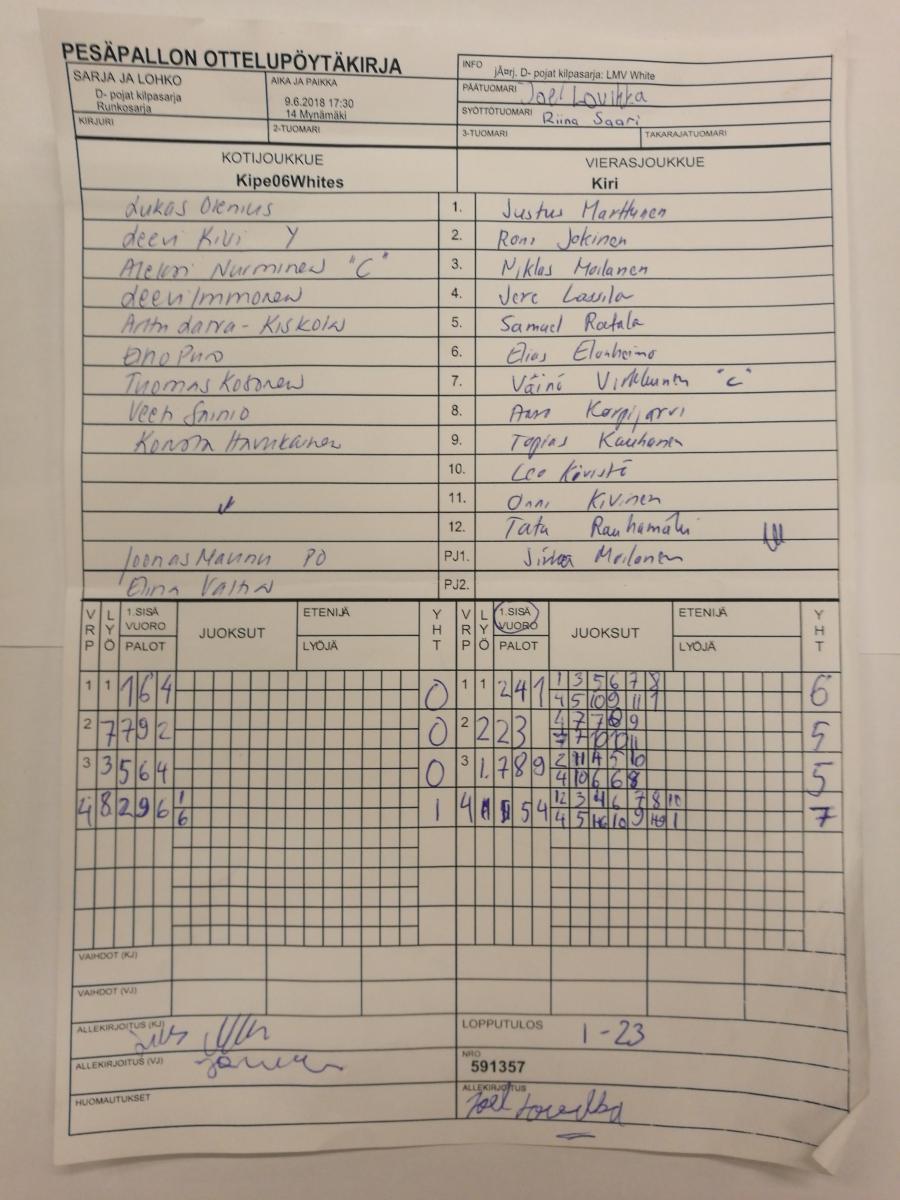 PESÄPALLON OTTELUPÖYTÄKIRJA
SARJA JA LOHKO
D- pojat kilpasarja
Runkosarja
AIKA JA PAIKKA
9.6.2018 17:30
14 Mynämäki
KIRJURI
2-TUOMARI
INFO
jÄ¤rj. D- pojat kilpasarja: LMV White
PÄÄTUOMARI Joel Lovikka
SYÖTTÖTUOMARI Riina Saari
3-TUOMARI
TAKARAJATUOMARI
KOTIJOUKKUE VIERASJOUKKUE
Kipe06Whites Kiri
Lukas Olenius 1. Justus Marttunen
Leevi Kivi Y 2. Roni Jokinen
Aleksi Nurminen "C" 3. Niklas Moilanen
Leevi Immonen 4. Jere Lassila
5. Samuel Ratala
Eino Puro 6. Elias Elonheimo
Tuomas Kosonen 7. Väinö "C"
Veeti Sainio 8. Karpijarvi
Konsta Havukainen 9. Topias Kauhanen
10. Leo
11. Onni Kivinen
12. Tatu Rauhamäki
Joonas Mannu PO PJ1. Moilanen
Elina PJ2.
VRP LYÖ 1.SISÄ VUORO PALOT JUOKSUT ETENIJÄ LYÖJÄ YHT VRP LYÖ 1.SISÄ VUORO PALOT JUOKSUT ETENIJÄ LYÖJÄ YHT
1 1 1 6 4 0 1 1 2 4 1 1 3 5 6 7 8 6
4 5 10 9 11 1
2 7 7 9 2 0 2 2 2 3 5
3 3 5 6 4 0 3 1. 7 8 9 5
4 10 6 6 8
4 8 2 9 6 1 1 4 5 4 7
6
VAIHDOT (KJ)
VAIHDOT (VJ)
ALLEKIRJOITUS (KJ)
ALLEKIRJOITUS (VJ)
HUOMAUTUKSET
LOPPUTULOS 1-23
NRO
591357
ALLEKIRJOITUS
Joel Lovikka